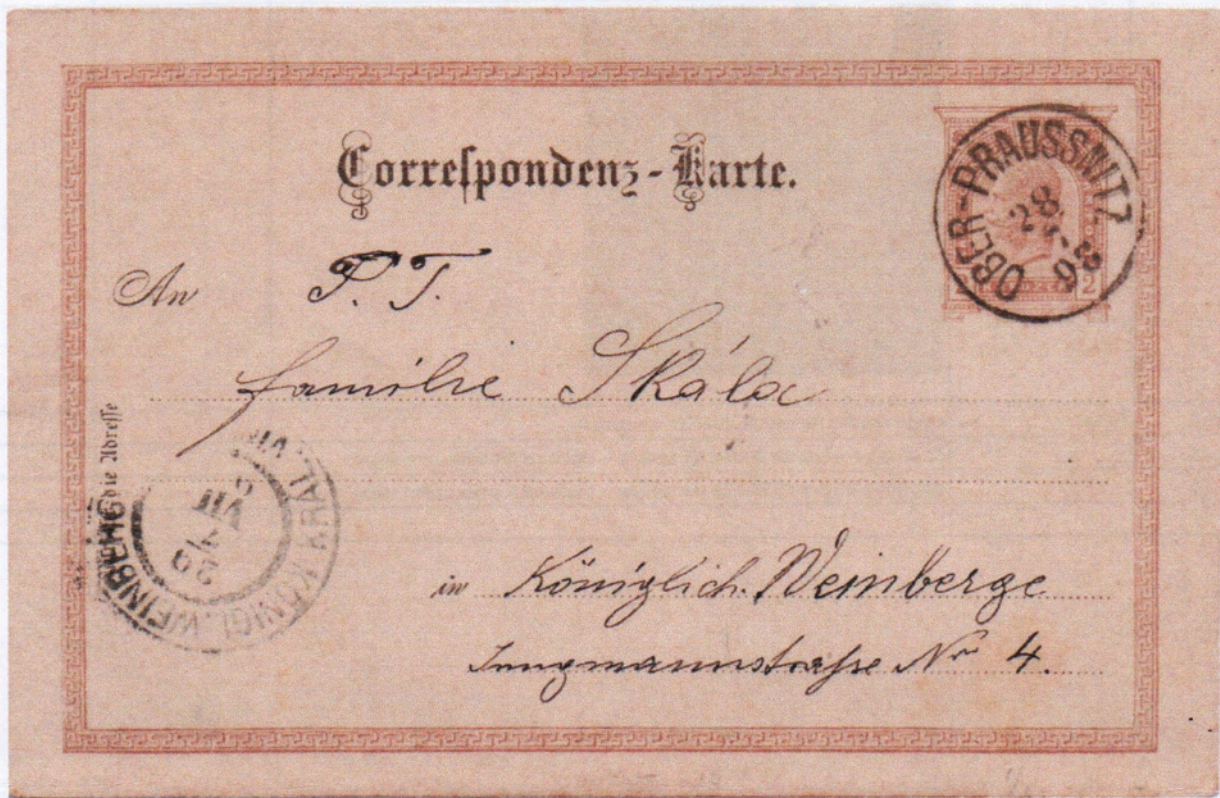 Correspondenz-Karte.
OBER-PRAUSSNITZ
28
98
2
An P. T.
Familie Skála
die Adresse
KÖNIGL. WEINBERG KRÁL. VI
VII
in Königlich. Weinberge
Jungmannstraße Nr 4.